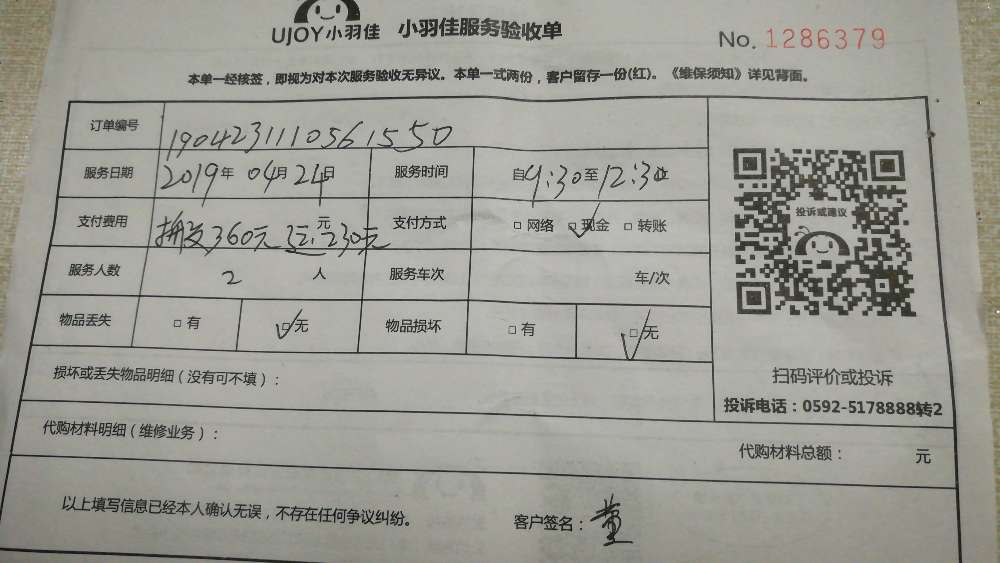 UJOY小羽佳 小羽佳服务验收单 No. 1286379
本单一经核签，即视为对本次服务验收无异议。本单一式两份，客户留存一份(红)。《维保须知》详见背面。
订单编号 1904231110561550
服务日期 2019年 04月 24日 服务时间 自9:30至12:30止
支付费用 360元 230元 元 支付方式 □网络 □现金 □转账
服务人数 2 人 服务车次 车/次
物品丢失 □有 □无 物品损坏 □有 □无
投诉或建议
扫码评价或投诉
投诉电话：0592-5178888转2
损坏或丢失物品明细（没有可不填）：
代购材料明细（维修业务）： 代购材料总额： 元
以上填写信息已经本人确认无误，不存在任何争议纠纷。 客户签名：